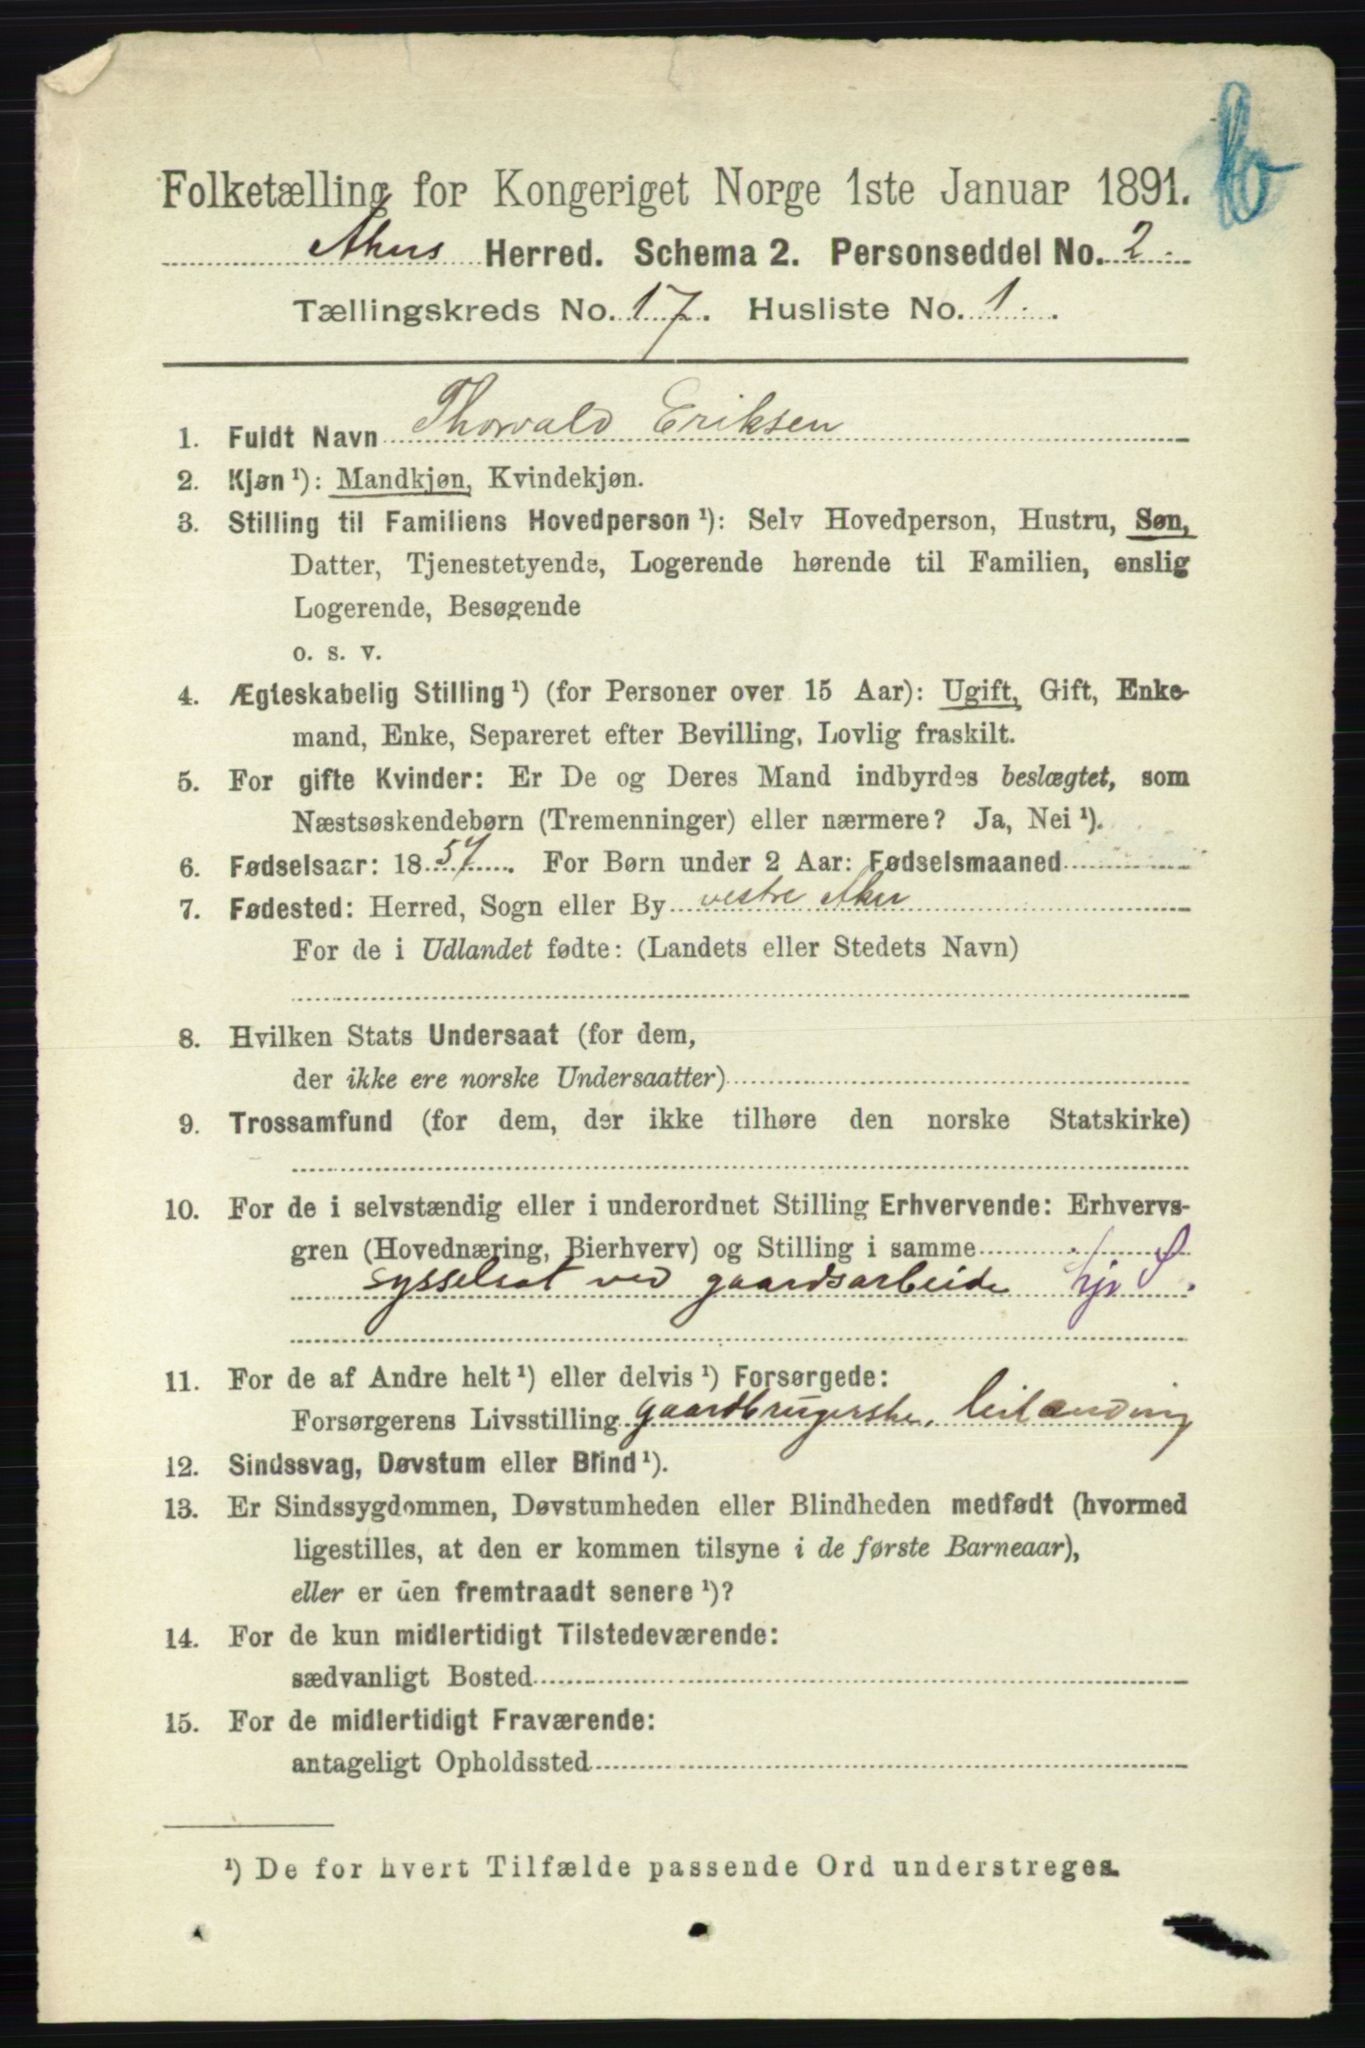 Folketælling for Kongeriget Norge 1ste Januar 1891.
Akers Herred. Schema 2. Personseddel No. 2
Tællingskreds No. 17. Husliste No. 1.
1. Fuldt Navn Thorvald Eriksen
2. Kjøn ¹): Mandkjøn, Kvindekjøn.
3. Stilling til Familiens Hovedperson ¹): Selv Hovedperson, Hustru, Søn,
Datter, Tjenestetyende, Logerende hørende til Familien, enslig
Logerende, Besøgende
o. s. v.
4. Ægteskabelig Stilling ¹) (for Personer over 15 Aar): Ugift, Gift, Enke-
mand, Enke, Separeret efter Bevilling, Lovlig fraskilt.
5. For gifte Kvinder: Er De og Deres Mand indbyrdes beslægtet, som
Næstsøskendebørn (Tremenninger) eller nærmere? Ja, Nei ¹).
6. Fødselsaar: 1857. For Børn under 2 Aar: Fødselsmaaned
7. Fødested: Herred, Sogn eller By vestre Aker
For de i Udlandet fødte: (Landets eller Stedets Navn)
8. Hvilken Stats Undersaat (for dem,
der ikke ere norske Undersaatter)
9. Trossamfund (for dem, der ikke tilhøre den norske Statskirke)
10. For de i selvstændig eller i underordnet Stilling Erhvervende: Erhvervs-
gren (Hovednæring, Bierhverv) og Stilling i samme
sysselsat ved gaardsarbeide hjs
11. For de af Andre helt ¹) eller delvis ¹) Forsørgede:
Forsørgerens Livsstilling gaardbrugerske,
12. Sindssvag, Døvstum eller Blind ¹).
13. Er Sindssygdommen, Døvstumheden eller Blindheden medfødt (hvormed
ligestilles, at den er kommen tilsyne i de første Barneaar),
eller er den fremtraadt senere ¹)?
14. For de kun midlertidigt Tilstedeværende:
sædvanligt Bosted
15. For de midlertidigt Fraværende:
antageligt Opholdssted
¹) De for hvert Tilfælde passende Ord understreges.